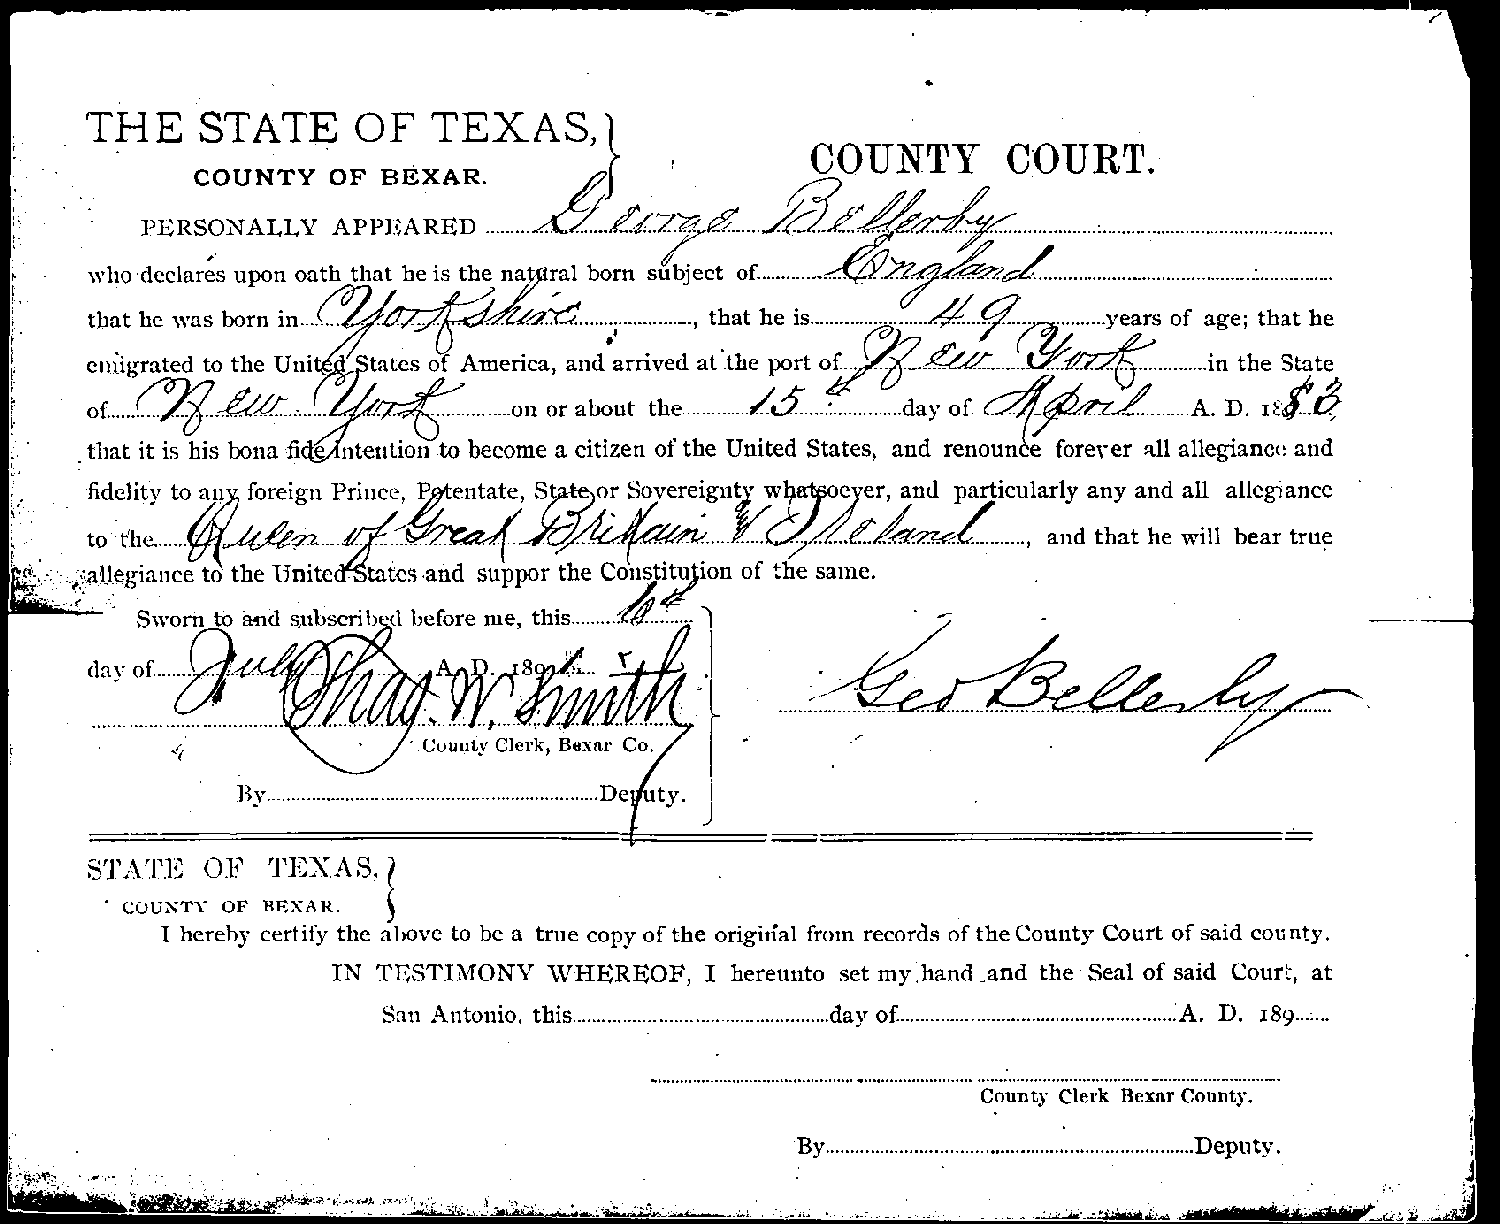 THE STATE OF TEXAS,
COUNTY OF BEXAR.
COUNTY COURT.
PERSONALLY APPEARED George Bellerby
who declares upon oath that he is the natural born subject of England
that he was born in Yorkshire, that he is 49 years of age; that he
emigrated to the United States of America, and arrived at the port of New York in the State
of New York on or about the 15th day of April A. D. 1883
that it is his bona fide intention to become a citizen of the United States, and renounce forever all allegiance and
fidelity to any foreign Prince, Potentate, State or Sovereignty whatsoever, and particularly any and all allegiance
to the Queen of Great Britain & Ireland, and that he will bear true
allegiance to the United States and suppor the Constitution of the same.
Sworn to and subscribed before me, this
day of July A. D. 189
Chas. W. Smith
Geo Bellerby
County Clerk, Bexar Co.
By Deputy.
STATE OF TEXAS,
COUNTY OF BEXAR.
I hereby certify the above to be a true copy of the original from records of the County Court of said county.
IN TESTIMONY WHEREOF, I hereunto set my hand and the Seal of said Court, at
San Antonio, this day of A. D. 189
County Clerk Bexar County.
By Deputy.